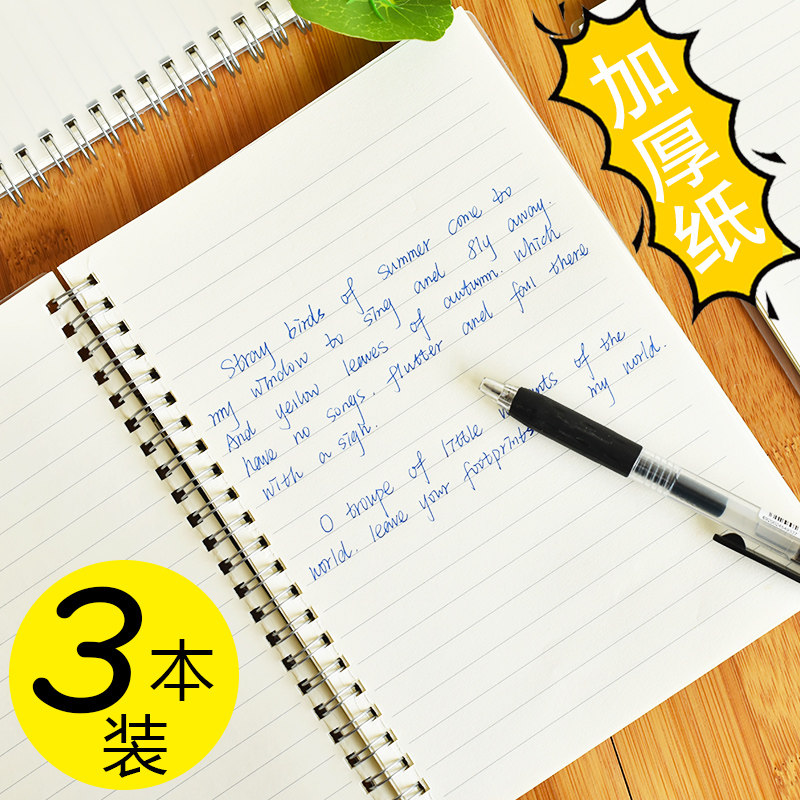 加
厚
纸
Stray birds of summer come to
my window to sing and fly away.
And yellow leaves of autumn. which
have no songs. flutter and fall there
with a sign.
O troupe of little of the
world. leave your footprints my world.
3本
装